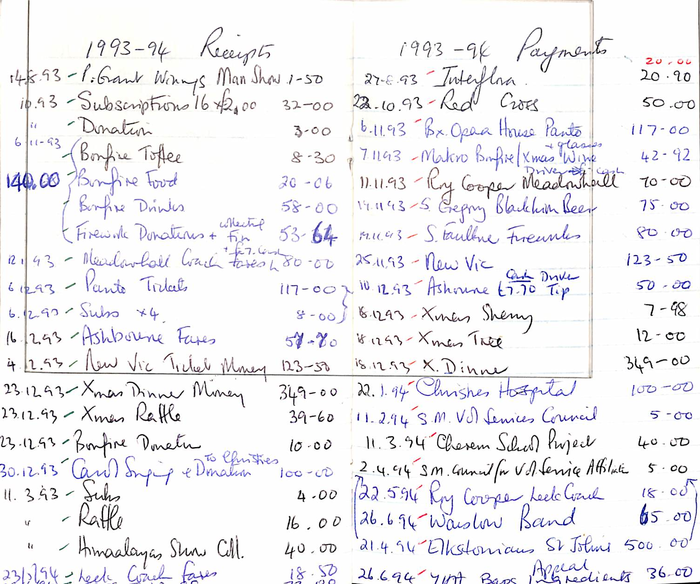 1993-94 Receipts
14.8.93 P. Grant Winnings Man Show 1-50
10.93 Subscriptions 16 x £2.00 32-00
" Donation 3-00
6-11-93 Bonfire Toffee 8-30
140.00 Bonfire Food 20-06
Bonfire Drinks 58-00
Firework Donations + collected Tip 53-64
12.1.93 Meadowhall Coach fares 80-00
6.12.93 Panto Tickets 117-00
6.12.93 Subs x4 8-00
16.12.93 Ashbourne Fares 57-70
4.12.93 New Vic Ticket Money 123-50
23.12.93 Xmas Dinner Money 349-00
23.12.93 Xmas Raffle 39-60
23.12.93 Bonfire Donatn 10.00
30.12.93 Carol Singing + Donation to Christies 100-00
11.3.93 Subs 4.00
" Raffle 16.00
" Himaalayas Show Coll. 40.00
Leek Coach Fares 18.50
1993-94 Payments
20.00
27-8.93 Interflora 20.90
22.10.93 Red Cross 50.00
6.11.93 Bx. Opera House Panto 117-00
7.11.93 Makro Bonfire/Xmas Wine + glasses 42-92
11.11.93 Roy Cooper Meadowhall 70-00
S. Gregory Blackburn Beer 75.00
S. Faulkner Fireworks 80.00
25.11.93 New Vic 123-50
10.12.93 Ashbourne £7.70 Driver Tip 50-00
18.12.93 Xmas Sherry 7-98
18.12.93 Xmas Tree 12-00
18.12.93 X. Dinner 349-00
22.1.94 Christies Hospital 100-00
11.2.94 S.M. Vol Services Council 5-00
11.3.94 School Project 40.00
2.4.94 S.M. Council for Vol Service Affiliate 5.00
22.5.94 Roy Cooper Leek Coach 18.00
26.6.94 Warslow Band 65.00
21.4.94 Elkstonians St Johns Appeal 500.00
26.6.94 Ingredients 36.00